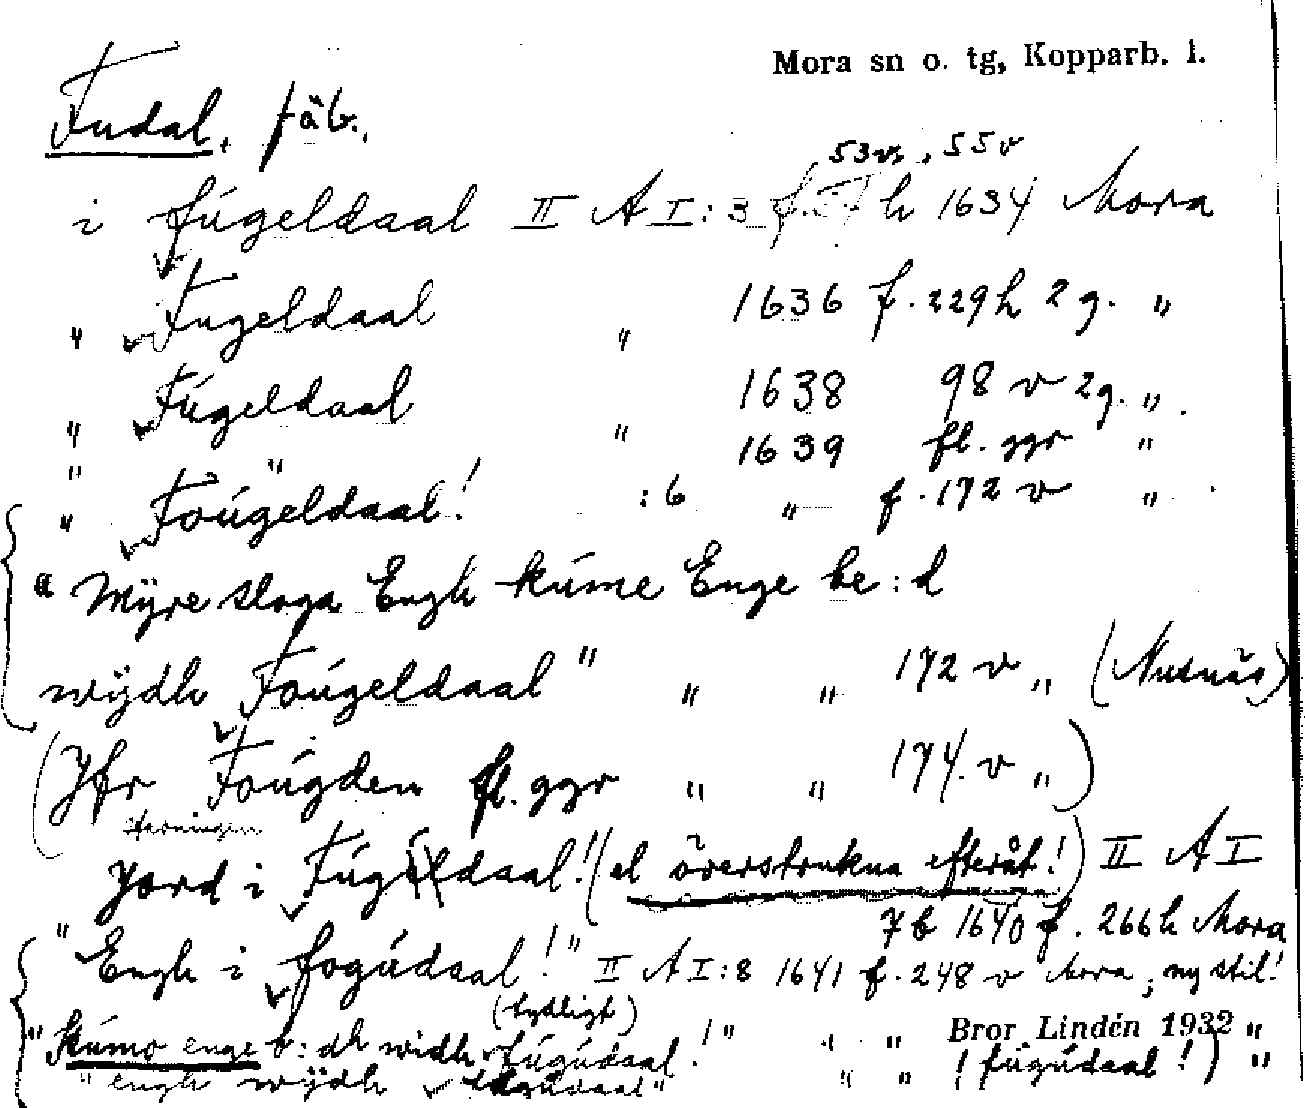 Mora sn o. tg, Kopparb. l.
Fudal, fäb.
53v, 55v
i fúgeldaal II A I:3 f. h 1634 Mora
" Fugeldaal " 1636 f. 229 h 2 g. "
" Fúgeldaal " 1638 98 v 2g. "
" " 1639 fl. ggr "
" Foúgeldaal! :6 " f. 172 v "
" Mÿre sloga Engh kúme Enge be:d
wÿdh Foúgeldaal" " " 172 v " (Nusnäs)
(Jfr Foúgden fl. ggr " " 174 v ")
Jord i Fúgeldaal! (el överstrukna efteråt!) II A I
7b 1640 f. 266 h Mora
" Engh i fogúdaal!" II A I:8 1641 f. 248 v Mora, ny stil!
(tydligt)
" Kúmo enge b:dh widh fúgúdaal!" " " (fúgúdaal!) "
Bror Lindén 1932
" engh wÿdh fúgúdaal" " "